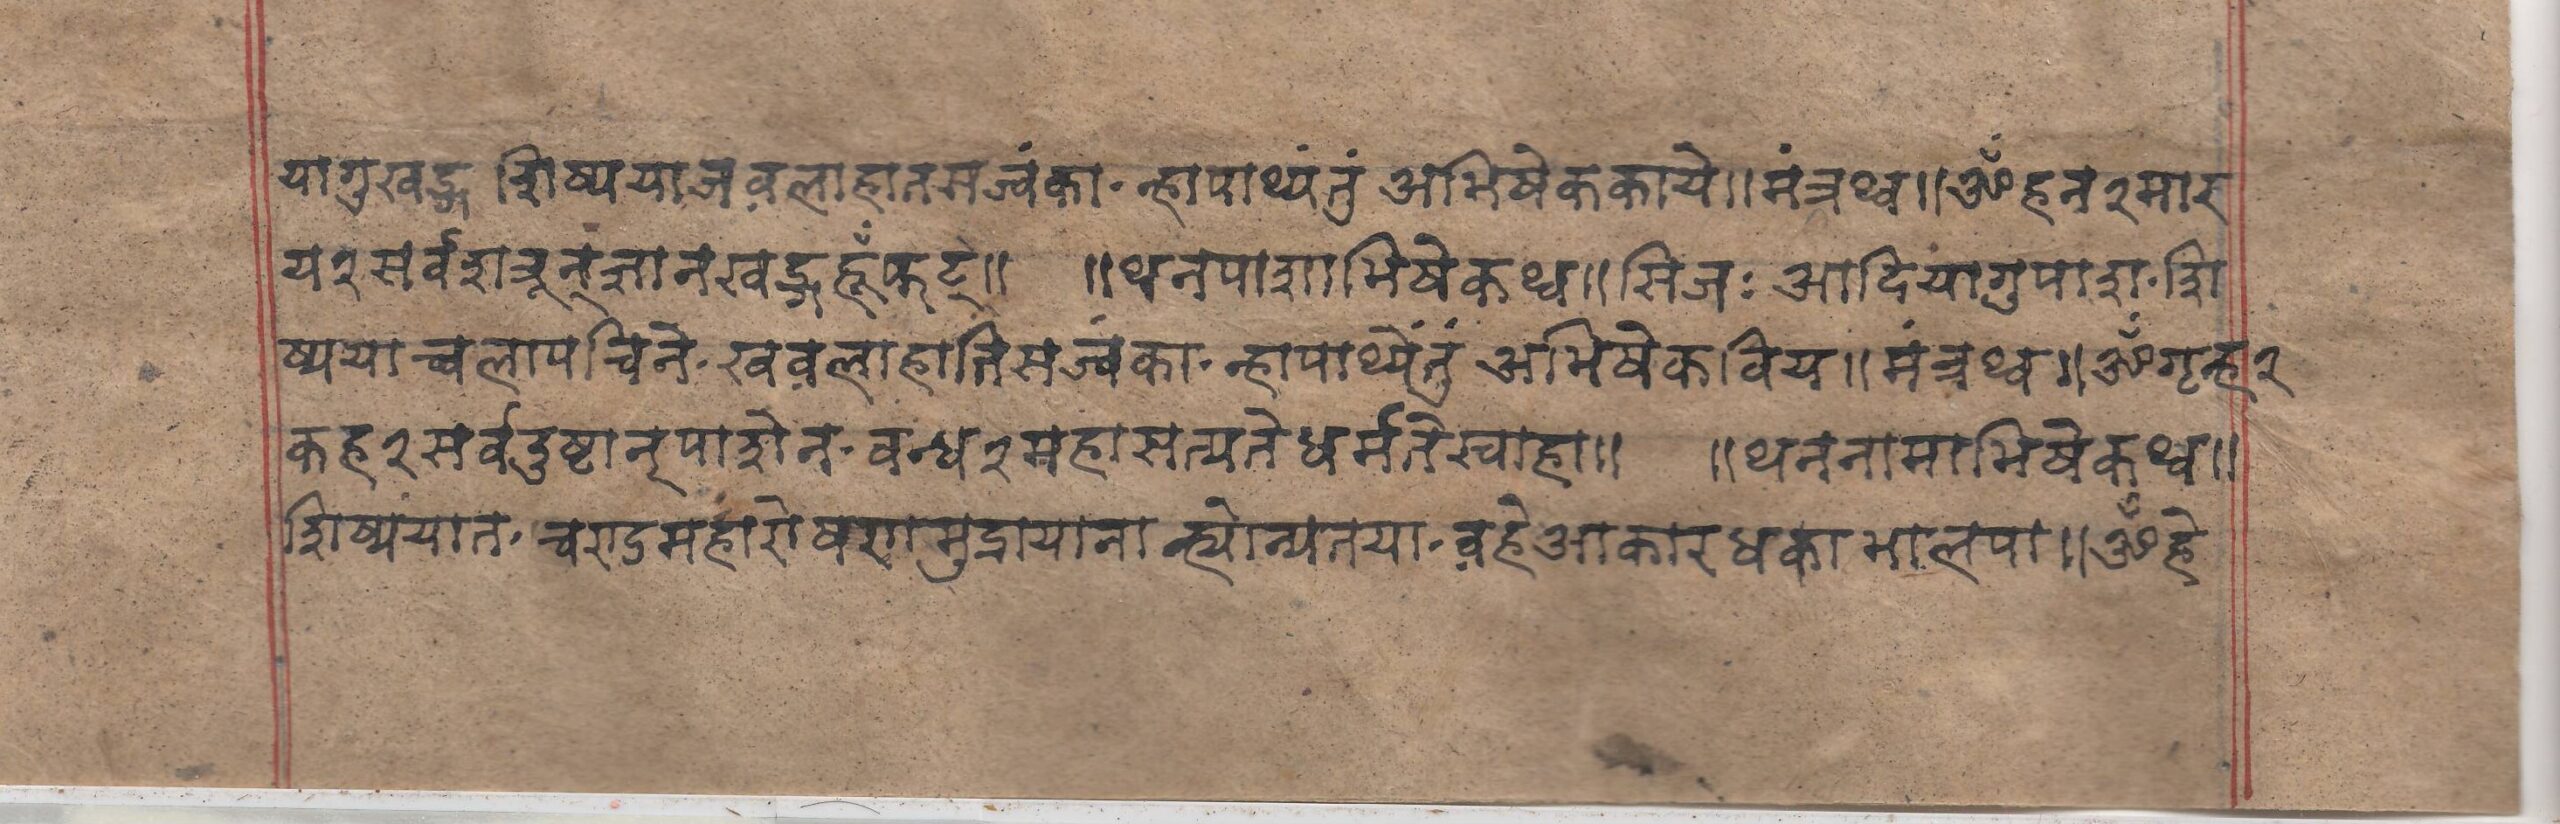 यागुखड्ग शिष्ययाजवलाहातसज्वंका॰ न्हापाथ्यंतुं अभिषेककाये॥ मंत्रथ्व॥ ॐ हन२मार
य२सर्वशत्रून्ज्ञानखड्गहूँफट्॥ ॥थनपाशाभिषेकथ्व॥ सिजः आदियागुपाश॰ शि
ष्ययाच्वलापचिने॰ खवलाहातिसज्वंका॰ न्हापाथ्येंतुं अभिषेकविय॥ मंत्रथ्व॥ ॐ गृन्ह२
कह२सर्वदुष्टान्पाशेन॰ बन्ध२महासत्यतेधर्मतेस्वाहा॥ ॥थननामाभिषेकथ्व॥
शिष्ययात॰ चण्डमहारोषणमुद्रायाना न्ह्योन्यतया॰ वहेआकारधकाभालपा॥ ॐ हे